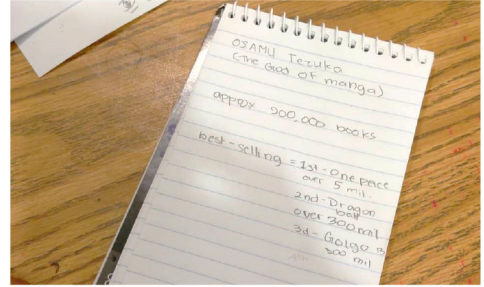 OSAMU Tezuka
(The God of manga)
approx 900,000 books
best-selling = 1st - One peice
over 5 mil.
2nd - Dragon
ball
over 300 mil
3d - Golgo 13
300 mil